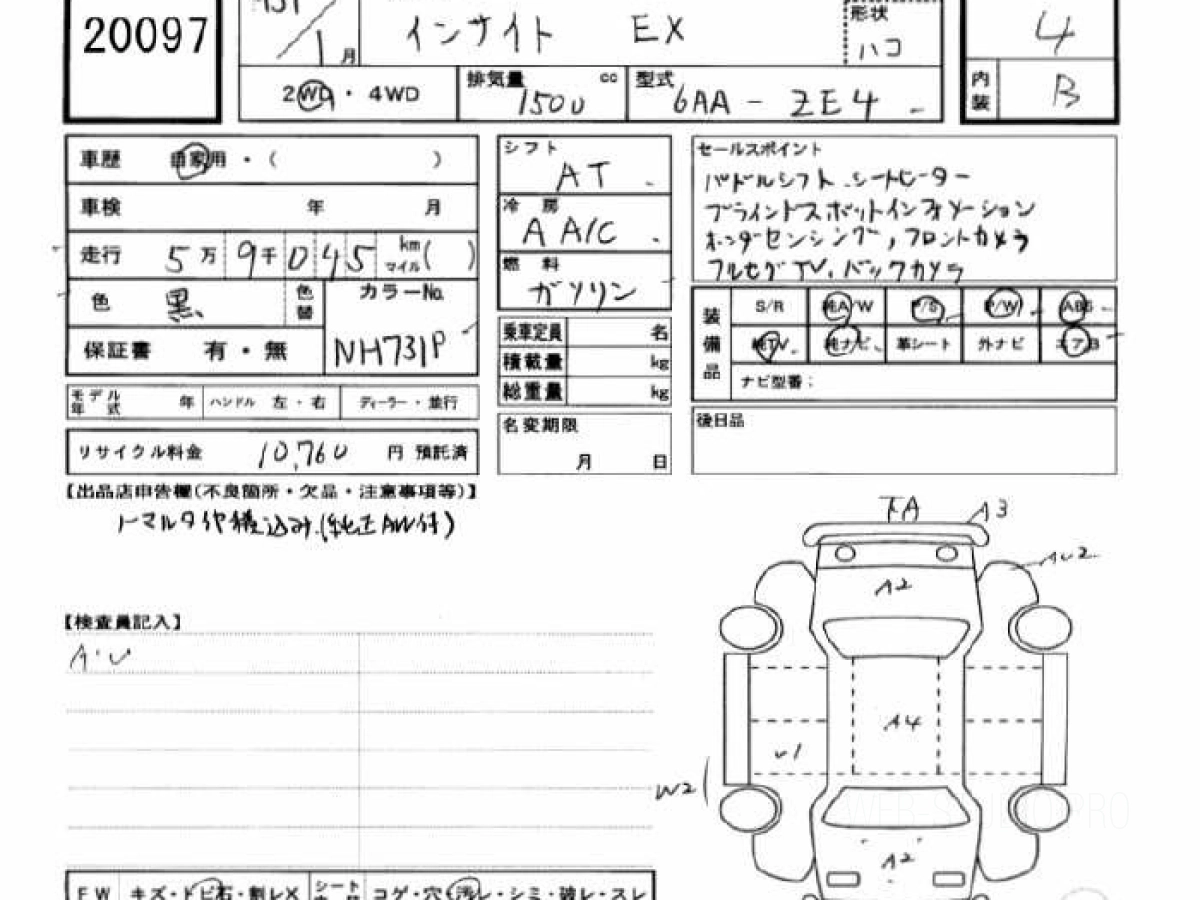 20097
1月
インサイト EX
形状
ハコ
4
2WD・4WD
排気量 cc
1500
型式
6AA-ZE4
内装
B
車歴 自家用・( )
車検 年 月
走行 5万9千045 km マイル( )
色 黒 色替
カラーNo.
NH731P
保証書 有・無
モデル年式 年 ハンドル 左・右 ディーラー・並行
リサイクル料金 10,760 円 預託済
シフト
AT
冷房
AA/C
燃料
ガソリン
乗車定員 名
積載量 kg
総重量 kg
名変期限
月 日
セールスポイント
パドルシフト、シートヒーター
ブラインドスポットインフォメーション
ホンダセンシング,フロントカメラ
フルセグTV、バックカメラ
装備品
S/R 純A/W P/S P/W ABS
純TV 純ナビ 革シート 外ナビ エアB
ナビ型番:
後日品
【出品店申告欄(不良箇所・欠品・注意事項等)】
ノーマルタイヤ積込み(純正AW付)
【検査員記入】
A・U
下A
A3
AU2
A2
A4
U1
W2
A2
WEB STUDIO PRO
FW キズ・トビ石・割レX
シート コゲ・穴・汚レ・シミ・破レ・スレ